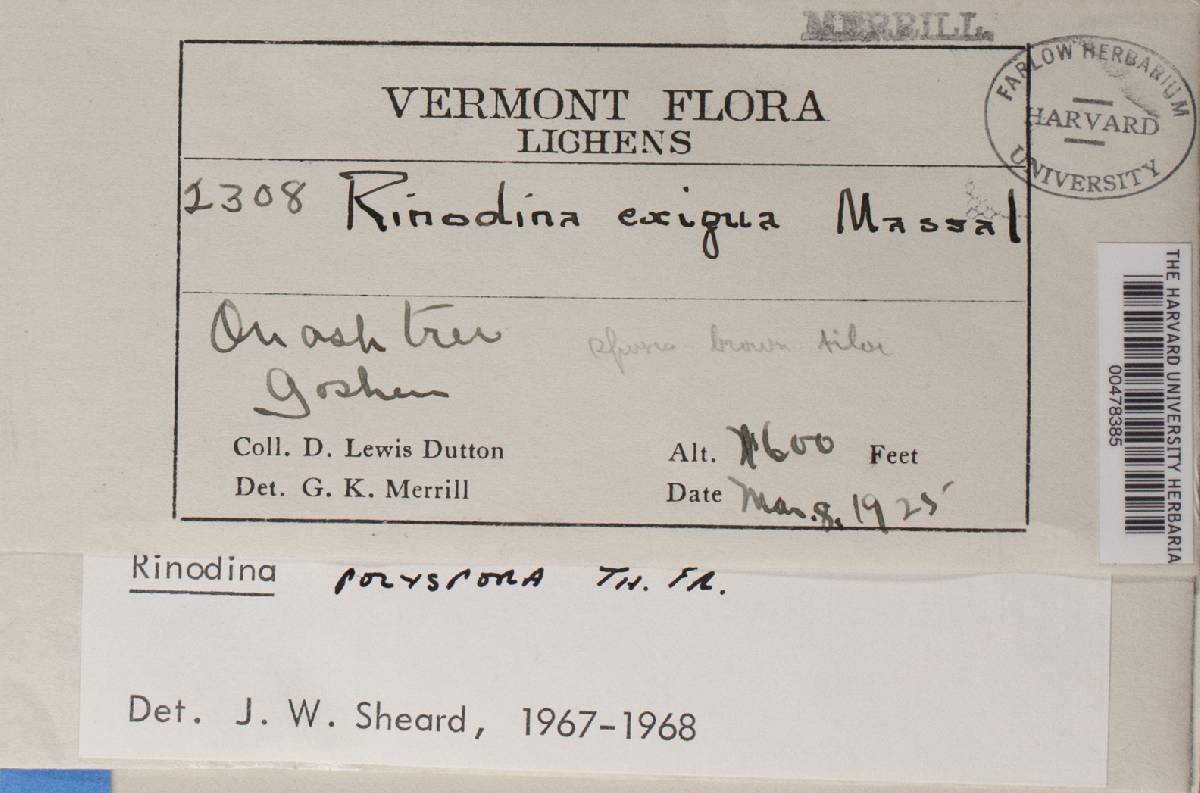 MERRILL.
FARLOW HERBARIUM
HARVARD
UNIVERSITY
VERMONT FLORA
LICHENS
2308 Rinodina exigua Massal
On ash tree
brown
Goshen
Coll. D. Lewis Dutton
Alt. 600 Feet
Det. G. K. Merrill
Date Mar. 8, 1925
THE HARVARD UNIVERSITY HERBARIA
00478385
Rinodina POLYSPORA TH. FR.
Det. J. W. Sheard, 1967-1968